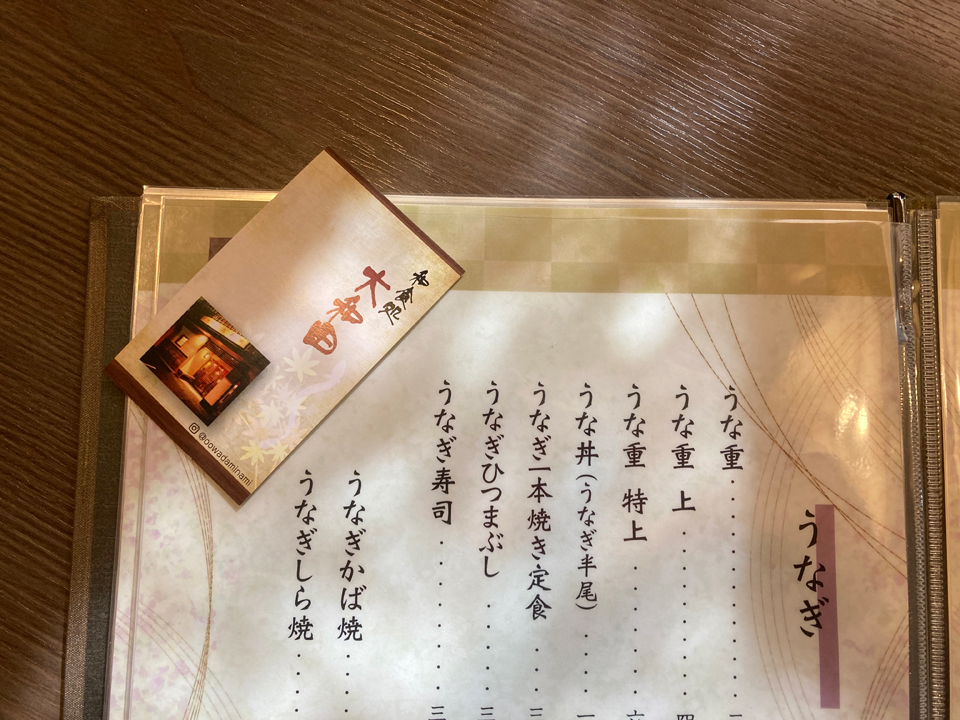 和食処
大和田
@oowadaminami
うなぎ
うな重
うな重 上
うな重 特上
うな丼(うなぎ半尾)
うなぎ一本焼き定食
うなぎひつまぶし
うなぎ寿司
うなぎかば焼
うなぎしら焼